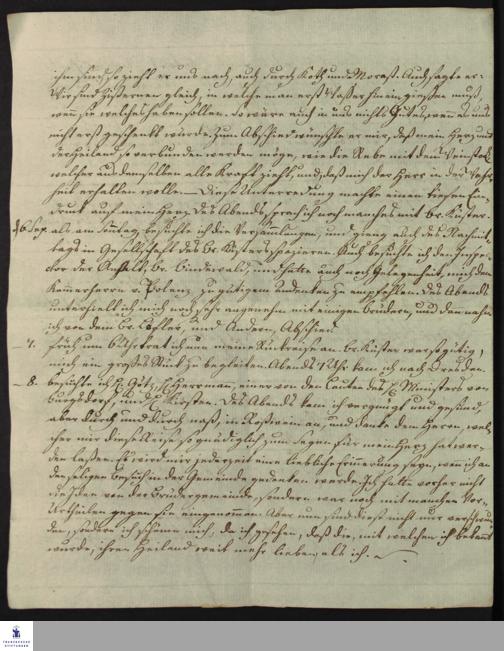 ihm sind, so zieht er uns nach, auch durch Koth und Morast. Auch sagte er:
Wir sind Zisternen gleich, in welche man erst Wasser hinein gießen muß,
wenn sie welches haben sollen. So wäre auch in uns nichts Gutes, wenn es uns
nicht erst geschenkt würde. Zum Abschied wünschte er mir, daß mein Herz und
der Heiland so verbunden werden möge, wie die Rebe mit dem Weinstock,
welcher aus demselben alle Kraft zieht, und daß mich der Herr in der Wahr
heit erhalten wolle. — Diese Unterredung machte einen tiefen Ein-
druck auf mein Herz. Des Abends sprach ich noch manches mit Br. Küster.
d. 6 Sep. als am Sontag, besuchte ich die Versammlungen, und gieng auch des Nachmit-
tags in Gesellschaft des Br. Küsters spazieren. Auch besuchte ich den Inspe-
ctor der Anstalt, Br. Linderwald, und hatte auch noch Gelegenheit, mich dem
Kammerherrn v. Polenz zu gütigem Andenken zu empfehlen. Des Abends
unterhielt ich mich noch sehr angenehm mit einigen Brüdern, und dann nahm
ich von dem Br. Andern, Abschied.
— 7. früh um 6 Uhr trat ich nun meine Rückreise an. Br. Küster war so gütig,
mich ein großes Stück zu begleiten. Abends 7 Uhr kam ich nach Dresden.
— 8. besuchte ich H. Götz, H. Herrman, einer von den Leuten des H. Ministers von
burgsdorf, und H. Kirsten. Des Abends kam ich vergnügt und gesund,
aber durch und durch naß, in Roßwein an, und dankte dem Herrn, wel-
cher mir diese Reise so gnädiglich zum Segen für mein Herz hat wer-
den lassen. Es wird mir jederzeit eine liebliche Erinnerung seyn, wenn ich an
den seligen Besuch in der Gemeinde gedenken werde. Ich hatte vorher nicht
von der Brüdergemeinde, sondern war noch mit manchen Vor-
urtheilen gegen sie eingenommen. Aber nun sind diese nicht nur verschwun
den, sondern ich schäme mich, da ich gesehen, daß die, mit welchen ich bekannt
wurde, ihren Heiland weit mehr lieben, als ich.
FRANCKESCHE
STIFTUNGEN